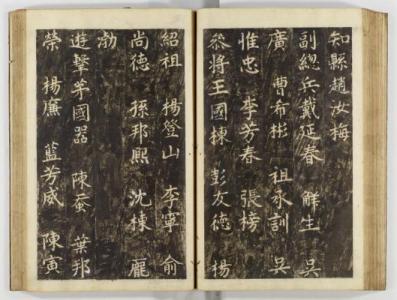 知縣趙汝梅
副總兵戴延春　解生　吳
廣　曹希彬　祖承訓　吳
惟忠　李芳春　張榜
叅將王國棟　彭友德　楊
紹祖　楊登山　李寧　俞
尚德　孫邦熙　沈棟　龐
渤
遊擊牟國器　陳蚕　葉邦
榮　楊廉　藍芳威　陳寅